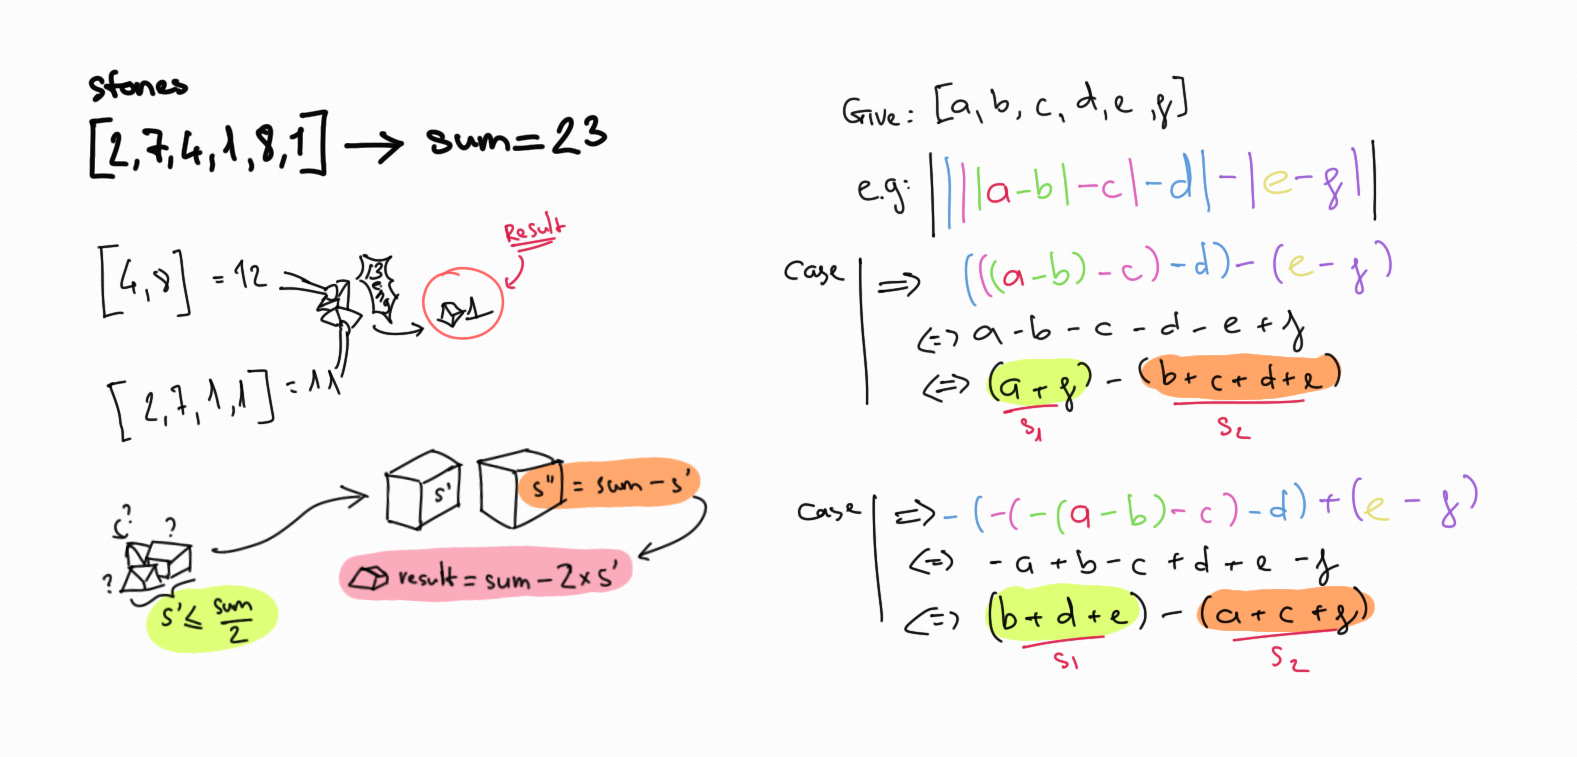 stones
[2,7,4,1,8,1] → sum=23
[4,8] = 12
Result
1
[2,7,1,1] = 11
? ?
?
s' ≤ sum/2
s'
s'' = sum - s'
result = sum - 2 × s'
Give: [a, b, c, d, e, f]
e.g: ||||a-b|-c|-d|-|e-f||
Case ⇒ (((a-b)-c)-d)-(e-f)
<=> a-b-c-d-e+f
<=> (a+f) - (b+c+d+e)
S1 S2
Case ⇒ -(-(-(a-b)-c)-d)+(e-f)
<=> -a+b-c+d+e-f
<=> (b+d+e) - (a+c+f)
S1 S2